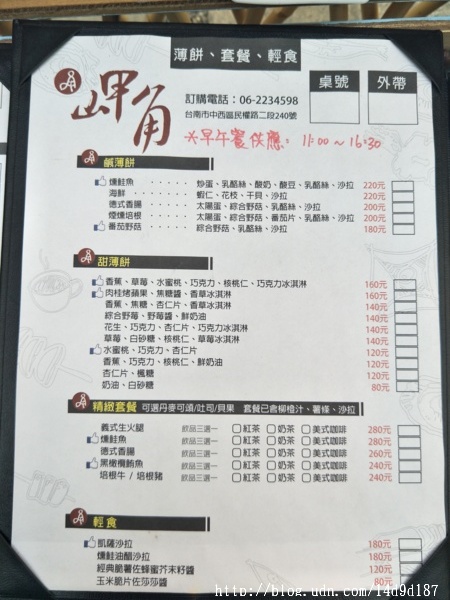 薄餅、套餐、輕食
岬角
訂購電話：06-2234598
台南市中西區民權路二段240號
桌號 外帶
*早午餐供應：11:00～16:30
鹹薄餅
燻鮭魚 ‥‥‥ 炒蛋、乳酪絲、酸奶、酸豆、乳酪絲、沙拉 220元
海鮮 ‥‥‥ 蝦仁、花枝、干貝、沙拉 220元
德式香腸 ‥‥‥ 太陽蛋、綜合野菇、乳酪絲、沙拉 200元
煙燻培根 ‥‥‥ 太陽蛋、綜合野菇、番茄片、乳酪絲、沙拉 200元
番茄野菇 ‥‥‥ 綜合野菇、乳酪絲、沙拉 180元
甜薄餅
香蕉、草莓、水蜜桃、巧克力、核桃仁、巧克力冰淇淋 160元
肉桂烤蘋果、焦糖醬、香草冰淇淋 160元
香蕉、焦糖、杏仁片、香草冰淇淋 140元
綜合野莓、野莓醬、鮮奶油 140元
花生、巧克力、杏仁片、巧克力冰淇淋 140元
草莓、白砂糖、核桃仁、草莓冰淇淋 140元
水蜜桃、巧克力、杏仁片 120元
香蕉、巧克力、核桃仁、鮮奶油 120元
杏仁片、楓糖 120元
奶油、白砂糖 80元
精緻套餐 可選丹麥可頌/吐司/貝果 套餐已含柳橙汁、薯條、沙拉
義式生火腿 飲品三選一 □紅茶 □奶茶 □美式咖啡 280元
燻鮭魚 飲品三選一 □紅茶 □奶茶 □美式咖啡 280元
德式香腸 飲品三選一 □紅茶 □奶茶 □美式咖啡 260元
黑橄欖鮪魚 飲品三選一 □紅茶 □奶茶 □美式咖啡 240元
培根牛 / 培根豬 飲品三選一 □紅茶 □奶茶 □美式咖啡 240元
輕食
凱薩沙拉 180元
燻鮭油醋沙拉 180元
經典脆薯佐蜂蜜芥末籽醬 120元
玉米脆片佐莎莎醬 80元
http://blog.udn.com/14d9d187